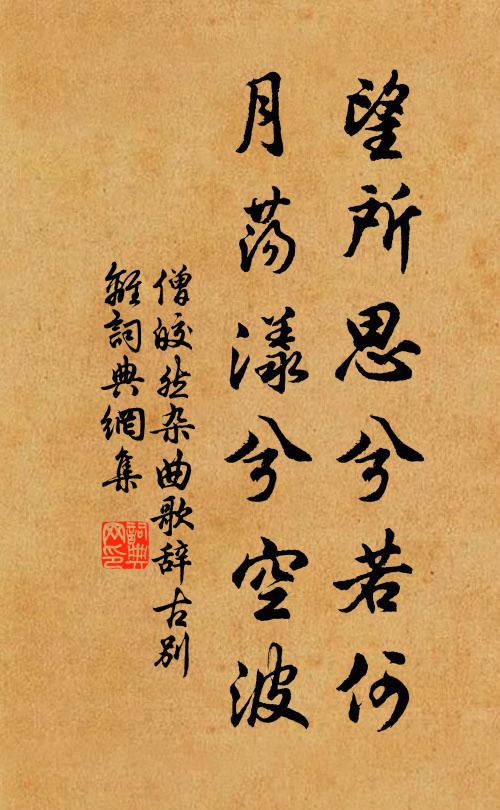 望所思兮若何
月荡漾兮空波
僧皎然杂曲歌辞古别
離詞典網集
詞典
网印